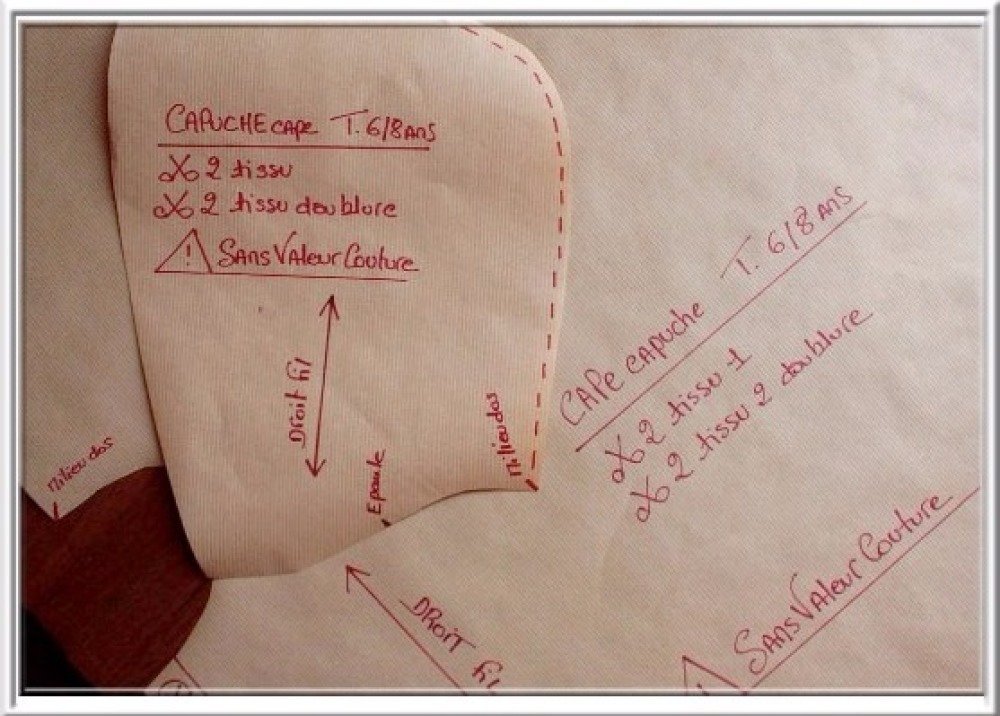 CAPUCHE cape T. 6/8 ANS
X 2 tissu
X 2 tissu doublure
! SANS VALeur Couture
DROIT fil
Epaule
Milieu dos
Milieu dos
CAPe CAPuche T. 6/8 ANS
X 2 tissu 1
X 2 tissu 2 doublure
! SANS VALeur Couture
DROIT fil